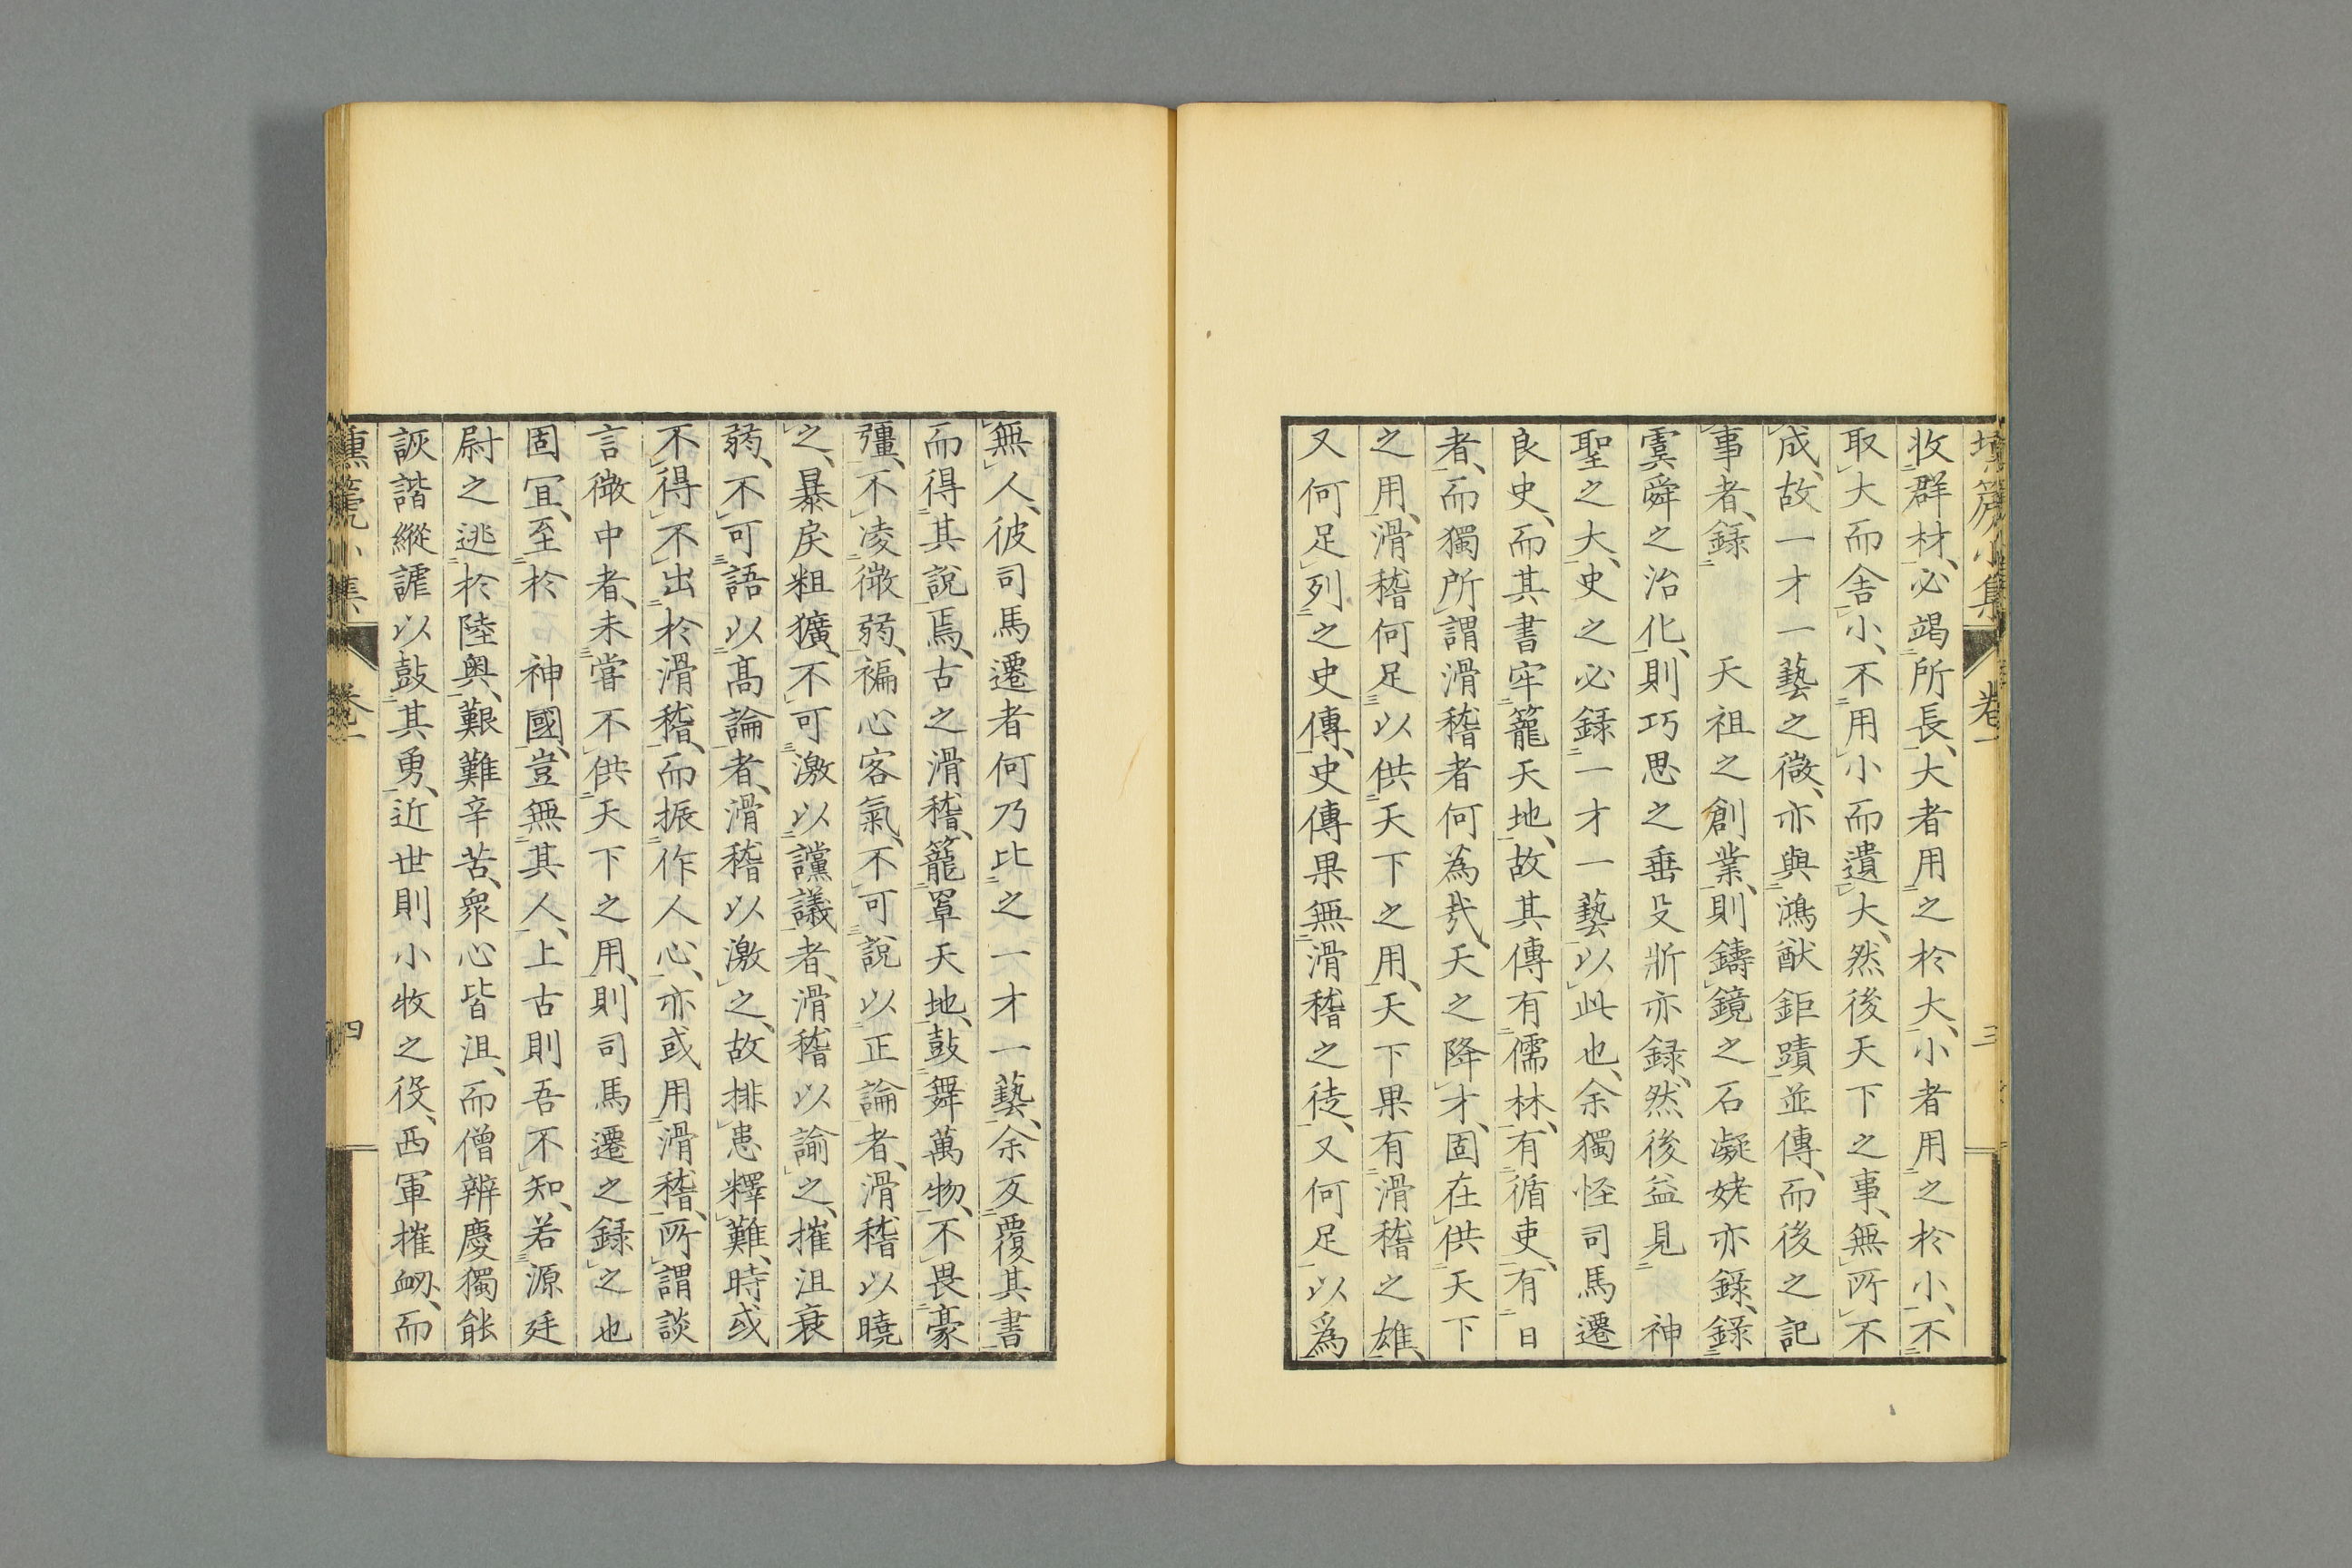 壎篪小集 卷一 三
收群材、必竭所長、大者用之於大、小者用之於小、不
取大而舍小、不用小而遺大、然後天下之事、無所不
成、故一才一藝之微、亦與鴻猷鉅蹟並傳、而後之記
事者、錄 天祖之創業、則鑄鏡之石凝姥亦錄、錄
虞舜之治化、則巧思之垂殳斨亦録、然後益見 神
聖之大、史之必録一才一藝以此也、余獨怪司馬遷
良史、而其書牢籠天地、故其傳有儒林、有循吏、有日
者、而獨所謂滑稽者何為哉、天之降才、固在供天下
之用、滑稽何足以供天下之用、天下果有滑稽之雄、
又何足列之史傳、史傳果無滑稽之徒、又何足以爲
無人、彼司馬遷者何乃比之一才一藝、余反覆其書
而得其說焉、古之滑稽、籠罩天地、鼓舞萬物、不畏豪
彊、不凌微弱、褊心客氣、不可說以正論者、滑稽以曉
之、暴戾粗獷、不可激以讜議者、滑稽以諭之、摧沮衰
弱、不可語以高論者、滑稽以激之、故排患釋難、時或
不得不出於滑稽、而振作人心、亦或用滑稽、所謂談
言微中者、未嘗不供天下之用、則司馬遷之録之也
固冝、至於 神國、豈無其人、上古則吾不知、若源廷
尉之逃於陸奥、艱難辛苦、衆心皆沮、而僧辨慶獨能
詼諧縱謔以鼓其勇、近世則小牧之役、西軍摧衂、而
壎篪小集 卷一 四